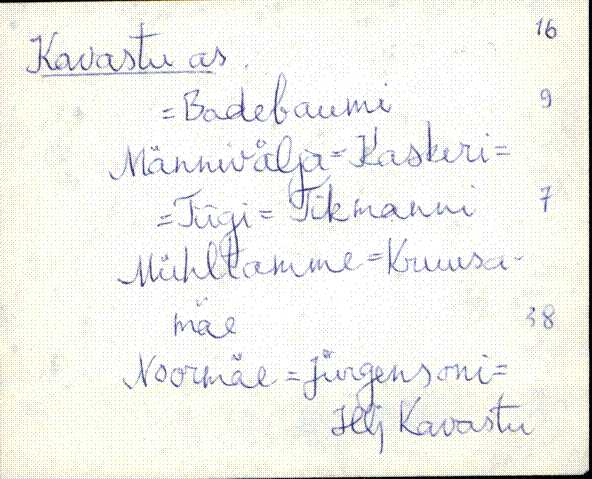 16
Kavastu as.
=Badebaumi 9
Männivälja=Kaskeri=
=Tiigi=Tikmanni 7
Mühltamme=Kruusa-
mäe 38
Noormäe=Jürgensoni=
Kavastu